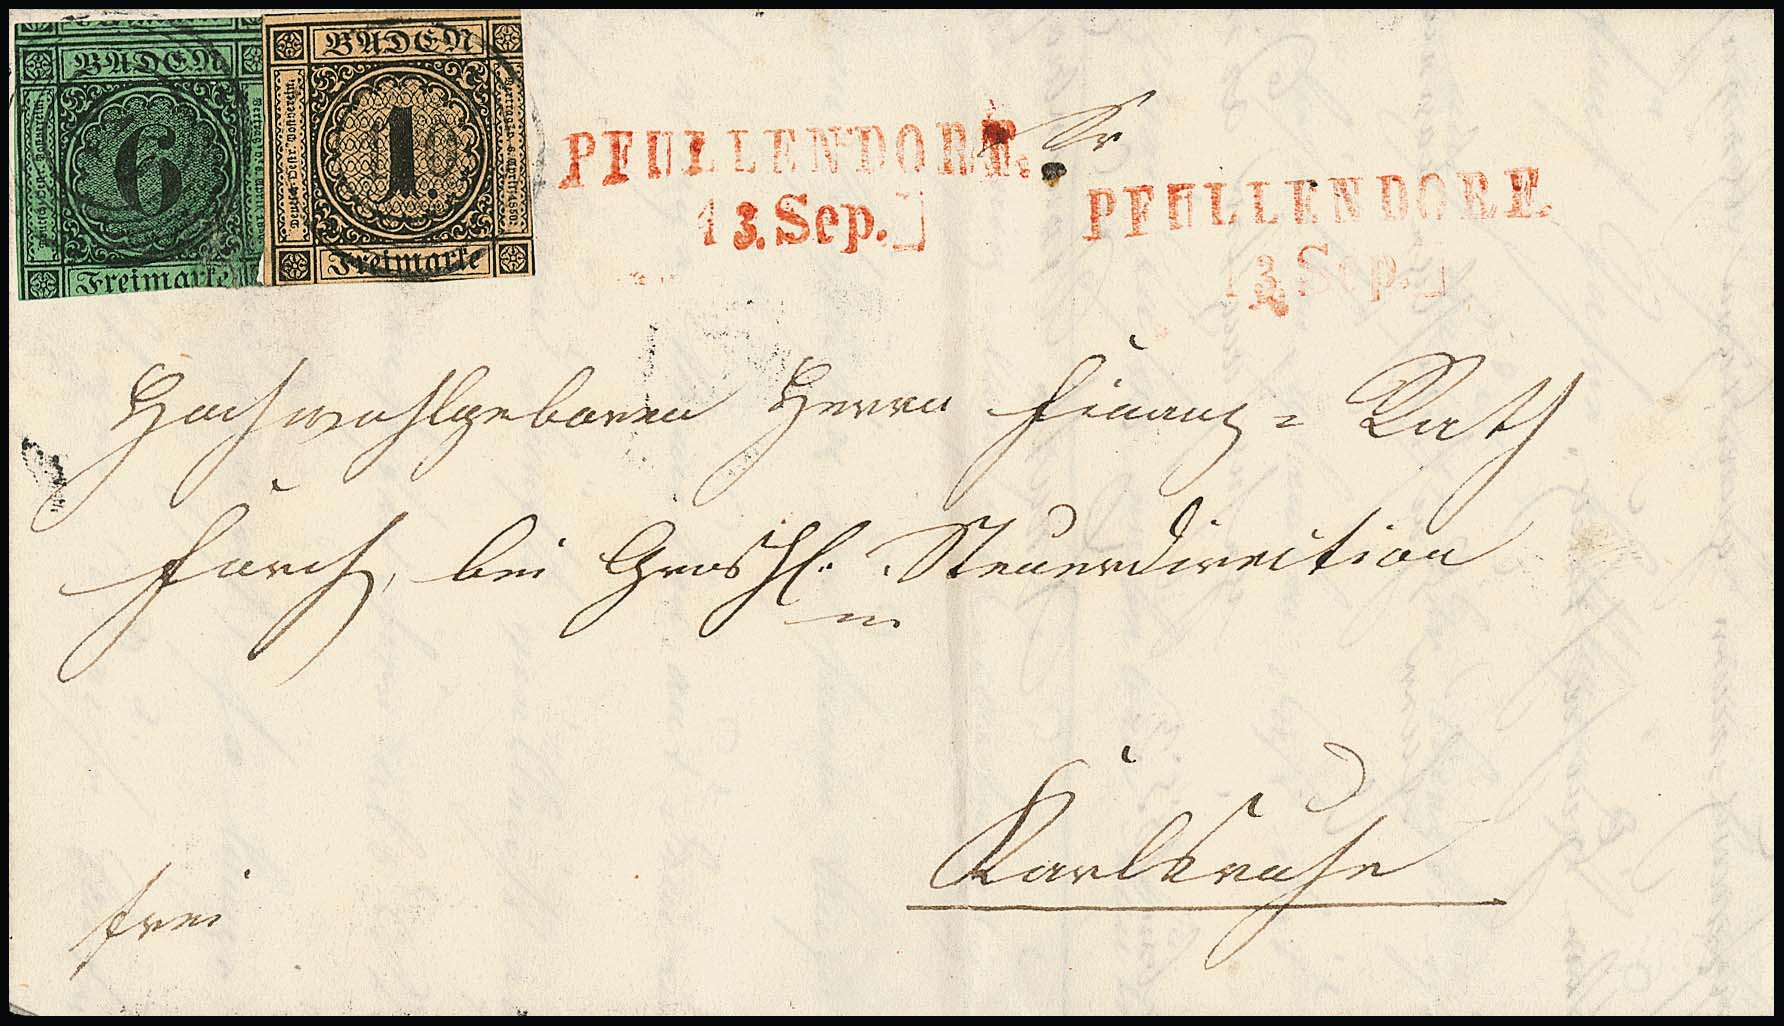 BADEN
6
Freimarke
BADEN
1.
Freimarke
Deutsch-Östr. Postverein
PFULLENDORF.
13. Sep.
Sr
PFULLENDORF.
13. Sep.
Hochwohlgeboren Herrn Finanz-Rath
bei Grosh. Steuerdirection
Karlsruhe
frei